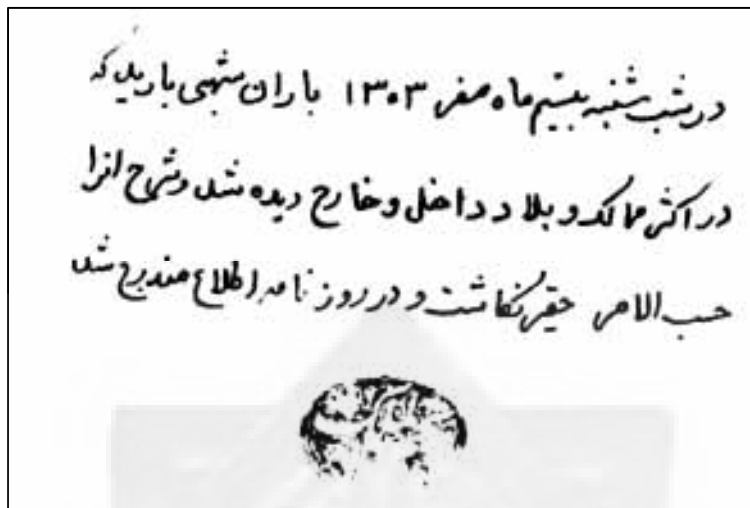 در شب شنبه بیستم ماه صفر ۱۳۰۳ باران شهبی بارید که
در اکثر ممالک و بلاد داخل و خارج دیده شد و شرح انرا
حسب الامر حقیر نگاشت و در روزنامه اطلاع مندرج شد